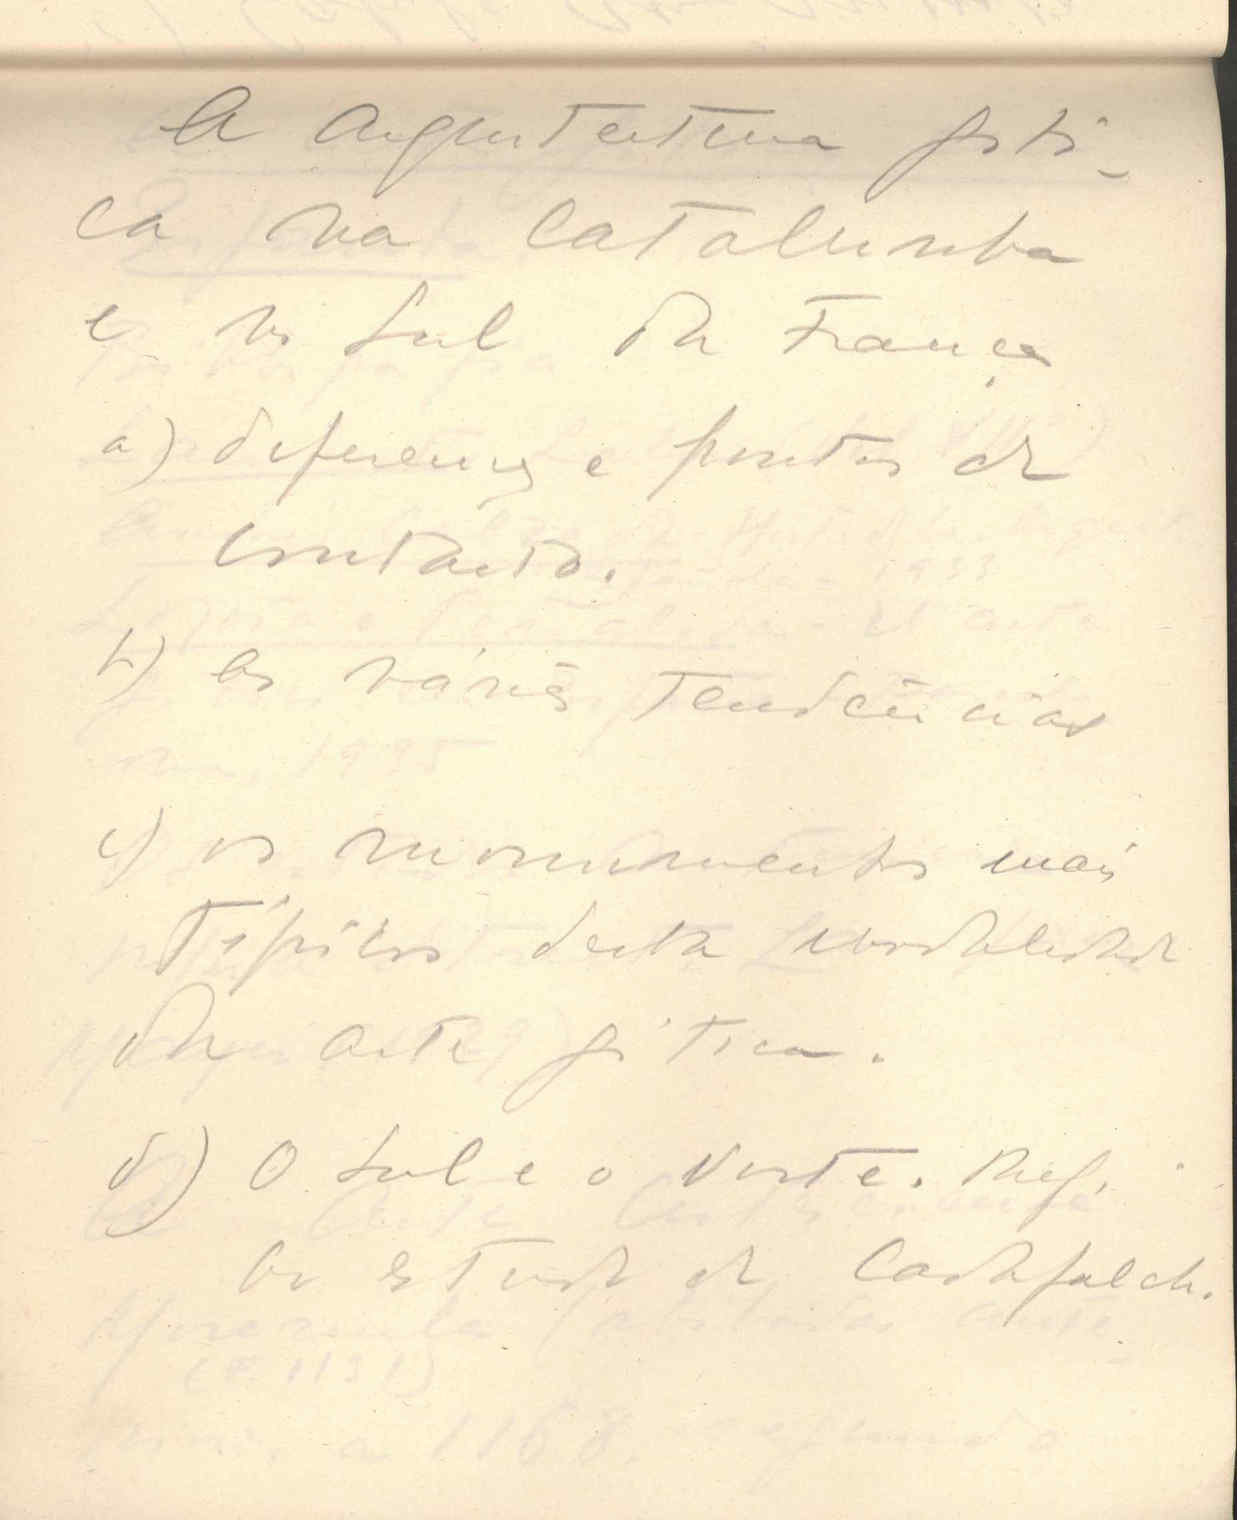 A arquitectura góti-
ca na Catalunha
e no Sul da França
a) diferenças e pontos de
contacto.
b) as várias tendências
c) os monumentos mais
típicos desta modalidade
da arte gótica.
d) O Sul e o Norte. Ref.
ao estudo de Cadafalch.